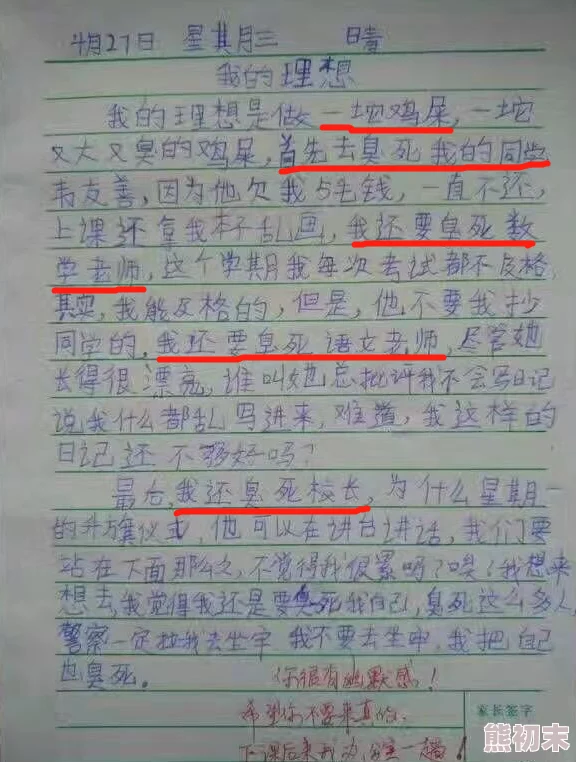 4月27日 星其月三 日晴
我的理想
我的理想是做一坨鸡屎,一坨
又大又臭的鸡屎,首先去臭死我的同学
韦友善,因为他欠我5毛钱,一直不还,
上课还拿我本子乱画,我还要臭死数
学老师,这个学期我每次考试都不及格,
其实,我能及格的,但是,他不要我抄
同学的,我还要臭死语文老师,尽管她
长得很漂亮,谁叫她总批评我不会写日记
说我什么都乱写进来,难道,我这样的
日记还不够好吗?
最后,我还臭死校长,为什么星期一
的升旗仪式,他可以在讲台讲话,我们要
站在下面那么久,不觉得我很累吗?唉!我想来
想去,我觉得我还是要臭死我自己,臭死这么多人,
警察一定拉我去坐牢,我不要去坐牢,我把自己
也臭死。
你很有幽默感!
希望你不要来真的.
家长签字
下课后来我办公室一趟!
熊初末